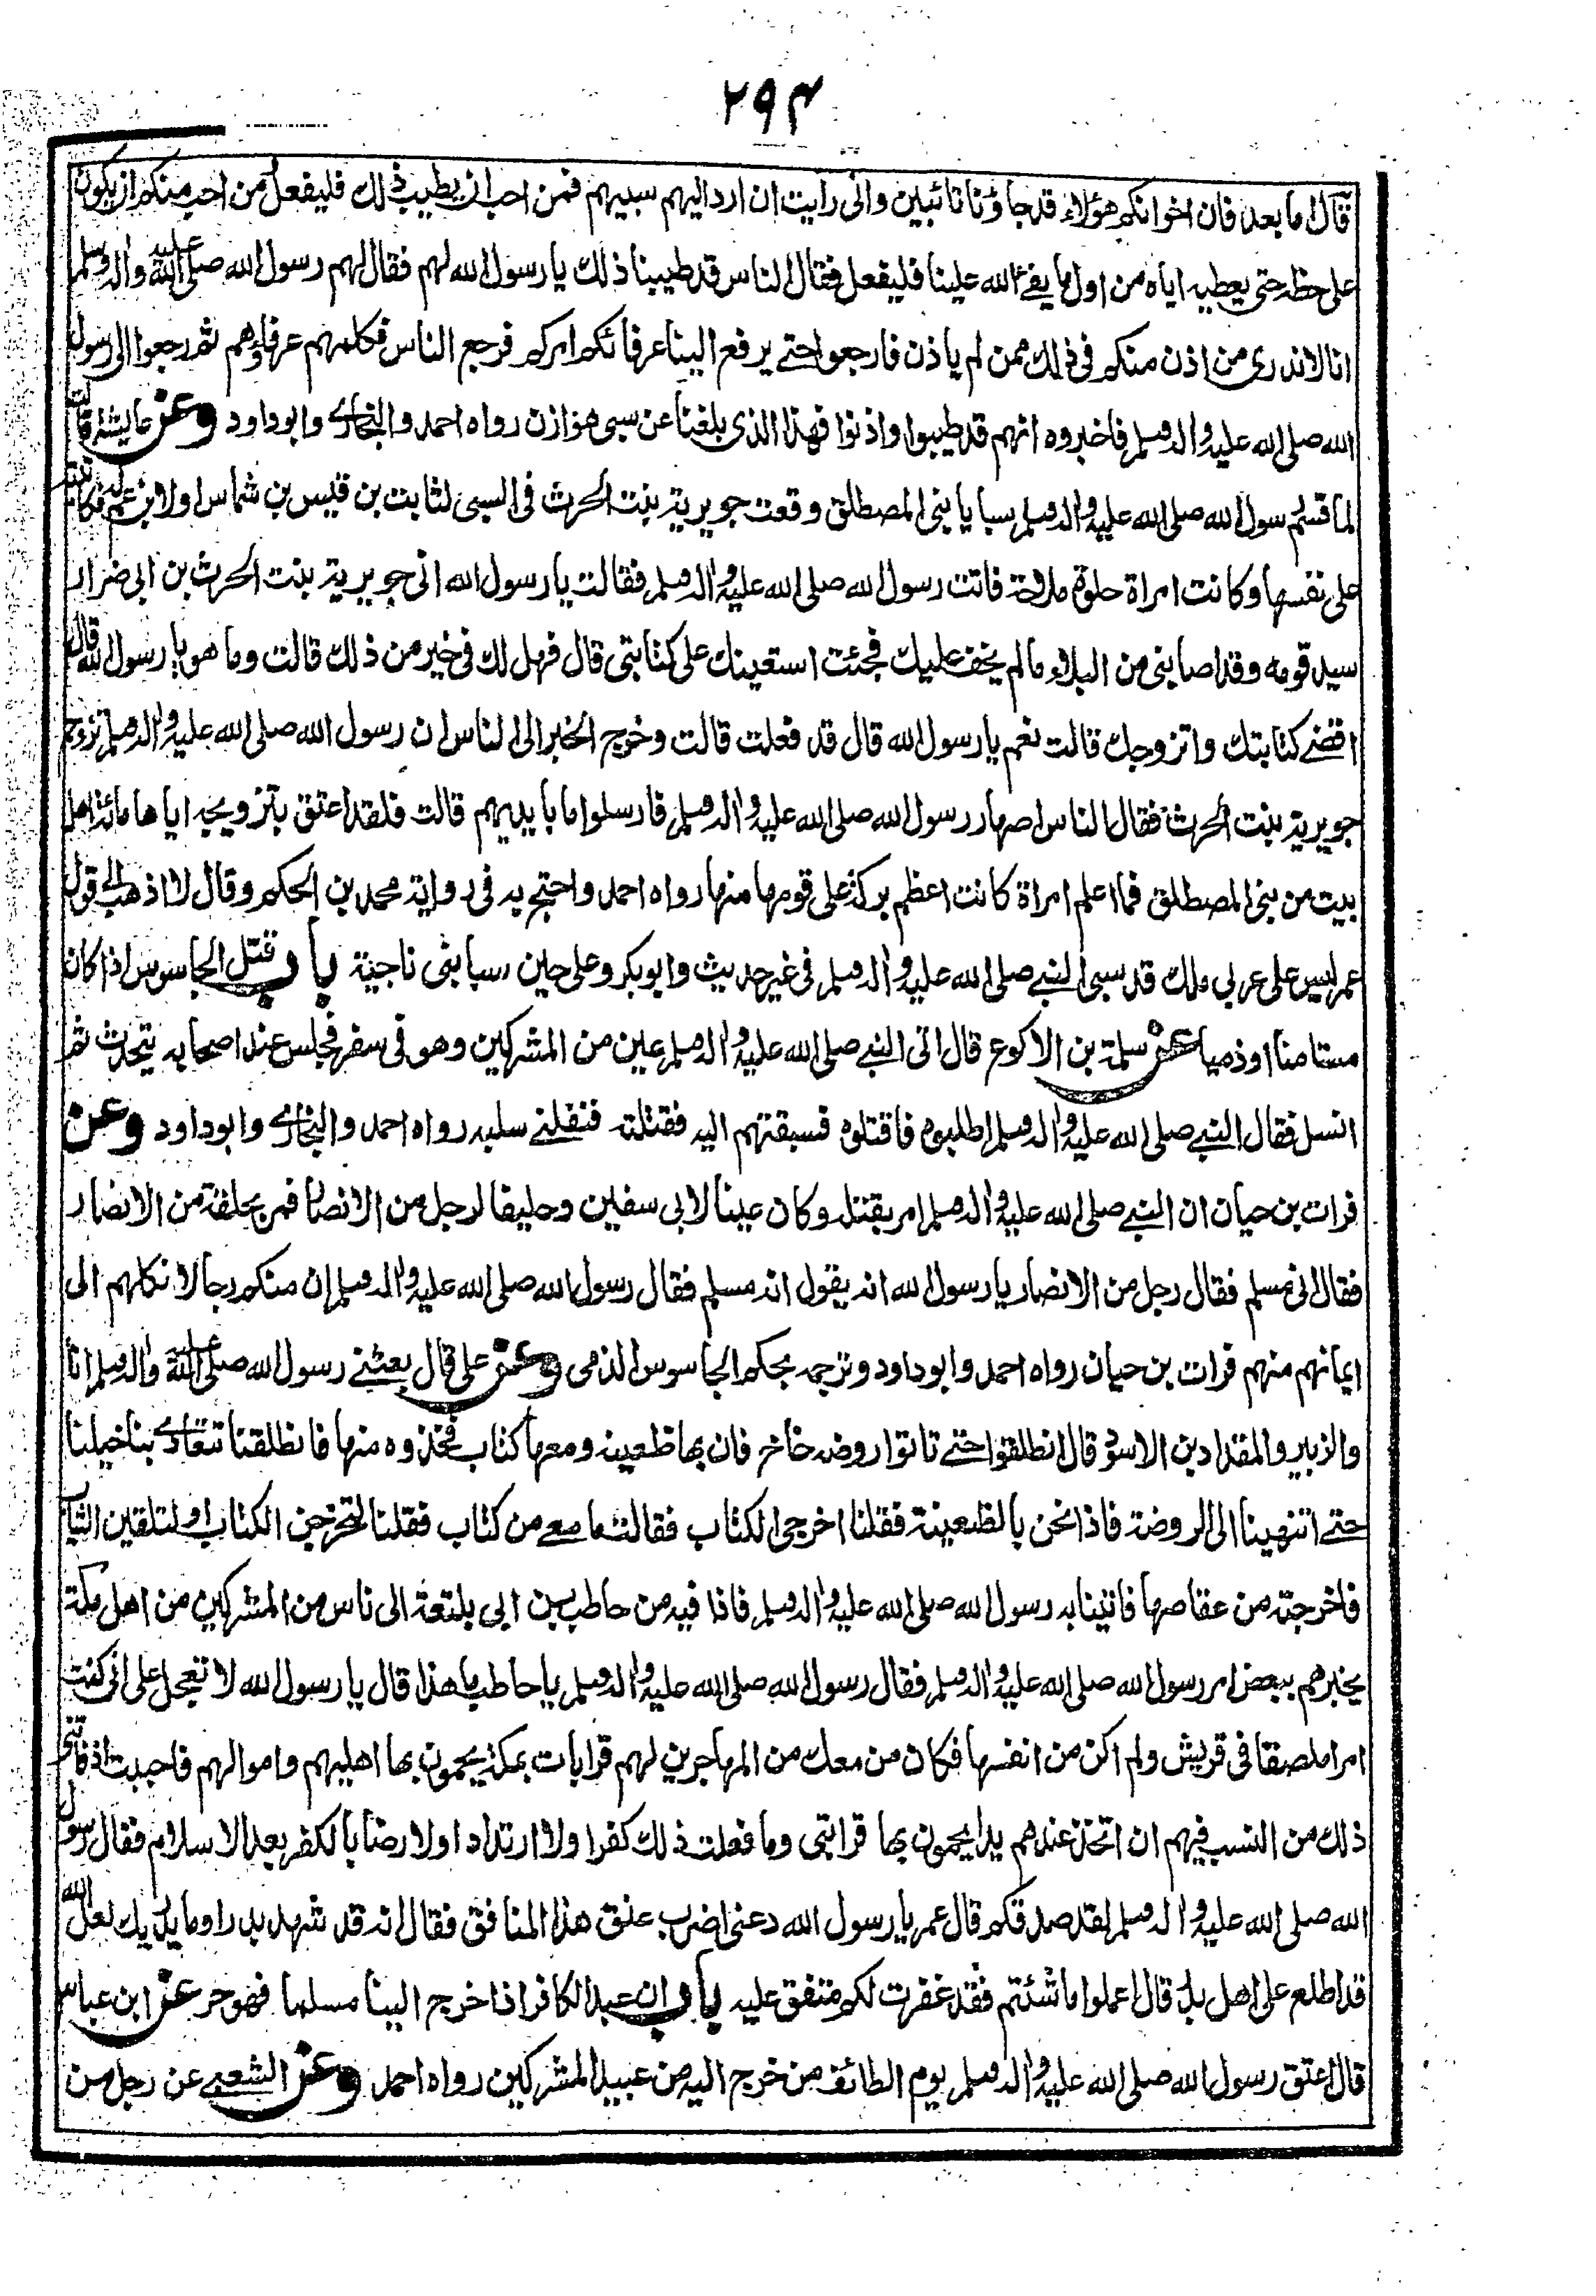 ٢٩٤
قال اما بعد فان اخوانكم هؤلاء قد جاؤنا تائبين وانى رايت ان ارد اليهم سبيهم فمن احب ان يطيب ذلك فليفعل من احب منكم ان يكون
على حظه حتى يعطيه اياه من اول ما يفئ الله علينا فليفعل فقال الناس قد طيبنا ذلك يا رسول الله لهم فقال لهم رسول الله صلى الله عليه واله وسلم
انا لا ندرى من اذن منكم فى ذلك ممن لم ياذن فارجعوا حتے يرفع الينا عرفائكم امركم فرجع الناس فكلمهم عرفاؤهم ثم رجعوا الى رسول
الله صلى الله عليه واله وسلم فاخبروه انهم قد طيبوا واذنوا فهذا الذى بلغنا عن سبى هوازن رواه احمد والبخارے وابو داود وعن عايشة قالت
لما قسم رسول الله صلى الله عليه واله وسلم سبايا بنى المصطلق وقعت جويرية بنت الحرث فى السبى لثابت بن قيس بن شماس او لابن عم له فكاتبته
على نفسها وكانت امراة حلوة ملاحة فاتت رسول الله صلى الله عليه واله وسلم فقالت يا رسول الله انى جويرية بنت الحرث بن ابى ضرار
سيد قومه وقد اصابنى من البلاء ما لم يخف عليك فجئت استعينك على كتابتى قال فهل لك فى خير من ذلك قالت وما هو يا رسول الله قال
اقضے كتابتك واتزوجك قالت نعم يا رسول الله قال قد فعلت قالت وخرج الخبر الى الناس ان رسول الله صلى الله عليه واله وسلم تزوج
جويرية بنت الحرث فقال الناس اصهار رسول الله صلى الله عليه واله وسلم فارسلوا ما بايديهم قالت فلقد اعتق بتزويجه اياها مائة اهل
بيت من بنى المصطلق فما اعلم امراة كانت اعظم بركة على قومها منها رواه احمد واحتج به فى رواية محمد بن الحكم وقال لا اذهب الى قول
عمر ليس على عربي ملك قد سبى النبے صلى الله عليه واله وسلم فى غير حديث وابو بكر وعلى حين سبا بنى ناجية باب قتل الجاسوس اذا كان
مستامنا او ذميا عن سلمة بن الاكوع قال اتى النبے صلى الله عليه واله وسلم عين من المشركين وهو فى سفر فجلس عند اصحابه يتحدث ثم
انسل فقال النبے صلى الله عليه واله وسلم اطلبوه فاقتلوه فسبقتهم اليه فقتلته فنفلنے سلبه رواه احمد والبخارے وابو داود وعن
فرات بن حيان ان النبے صلى الله عليه واله وسلم امر بقتله وكان عينا لابى سفين وحليفا لرجل من الانصار فمر بحلقة من الانصار
فقال انى مسلم فقال رجل من الانصار يا رسول الله انه يقول انه مسلم فقال رسول الله صلى الله عليه واله وسلم ان منكم رجالا نكلهم الى
ايمانهم منهم فرات بن حيان رواه احمد وابو داود وترجمه بحكم الجاسوس الذمى وعن على قال بعثنے رسول الله صلى الله عليه واله وسلم انا
والزبير والمقداد بن الاسود قال انطلقوا حتے تاتوا روضه خاخ فان بها ظعينه ومعها كتاب فخذوه منها فانطلقنا تتعادے بنا خيلنا
حتے انتهينا الى الروضة فاذا نحن بالظعينة فقلنا اخرجى الكتاب فقالت ما معے من كتاب فقلنا لتخرجن الكتاب او لتلقين الثياب
فاخرجته من عقاصها فاتينا به رسول الله صلى الله عليه واله وسلم فاذا فيه من حاطب بن ابى بلتعة الى ناس من المشركين من اهل مكة
يخبرهم ببعض امر رسول الله صلى الله عليه واله وسلم فقال رسول الله صلى الله عليه واله وسلم يا حاطب ما هذا قال يا رسول الله لا تعجل على انى كنت
امرا ملصقا فى قريش ولم اكن من انفسها فكان من معك من المهاجرين لهم قرابات بمكة يحمون بها اهليهم واموالهم فاحببت اذ فاتنى
ذلك من النسب فيهم ان اتخذ عندهم يدا يحمون بها قرابتى وما فعلت ذلك كفرا ولا ارتدادا ولا رضا بالكفر بعد الاسلام فقال رسول
الله صلى الله عليه واله وسلم لقد صدقكم قال عمر يا رسول الله دعنى اضرب عنق هذا المنافق فقال انه قد شهد بدرا وما يدريك لعل الله
قد اطلع على اهل بدر قال اعملوا ما شئتم فقد غفرت لكم متفق عليه باب ان عبد الكافر اذا خرج الينا مسلما فهو حر عن ابن عباس
قال اعتق رسول الله صلى الله عليه واله وسلم يوم الطائف من خرج اليه من عبيد المشركين رواه احمد وعن الشعبے عن رجل من